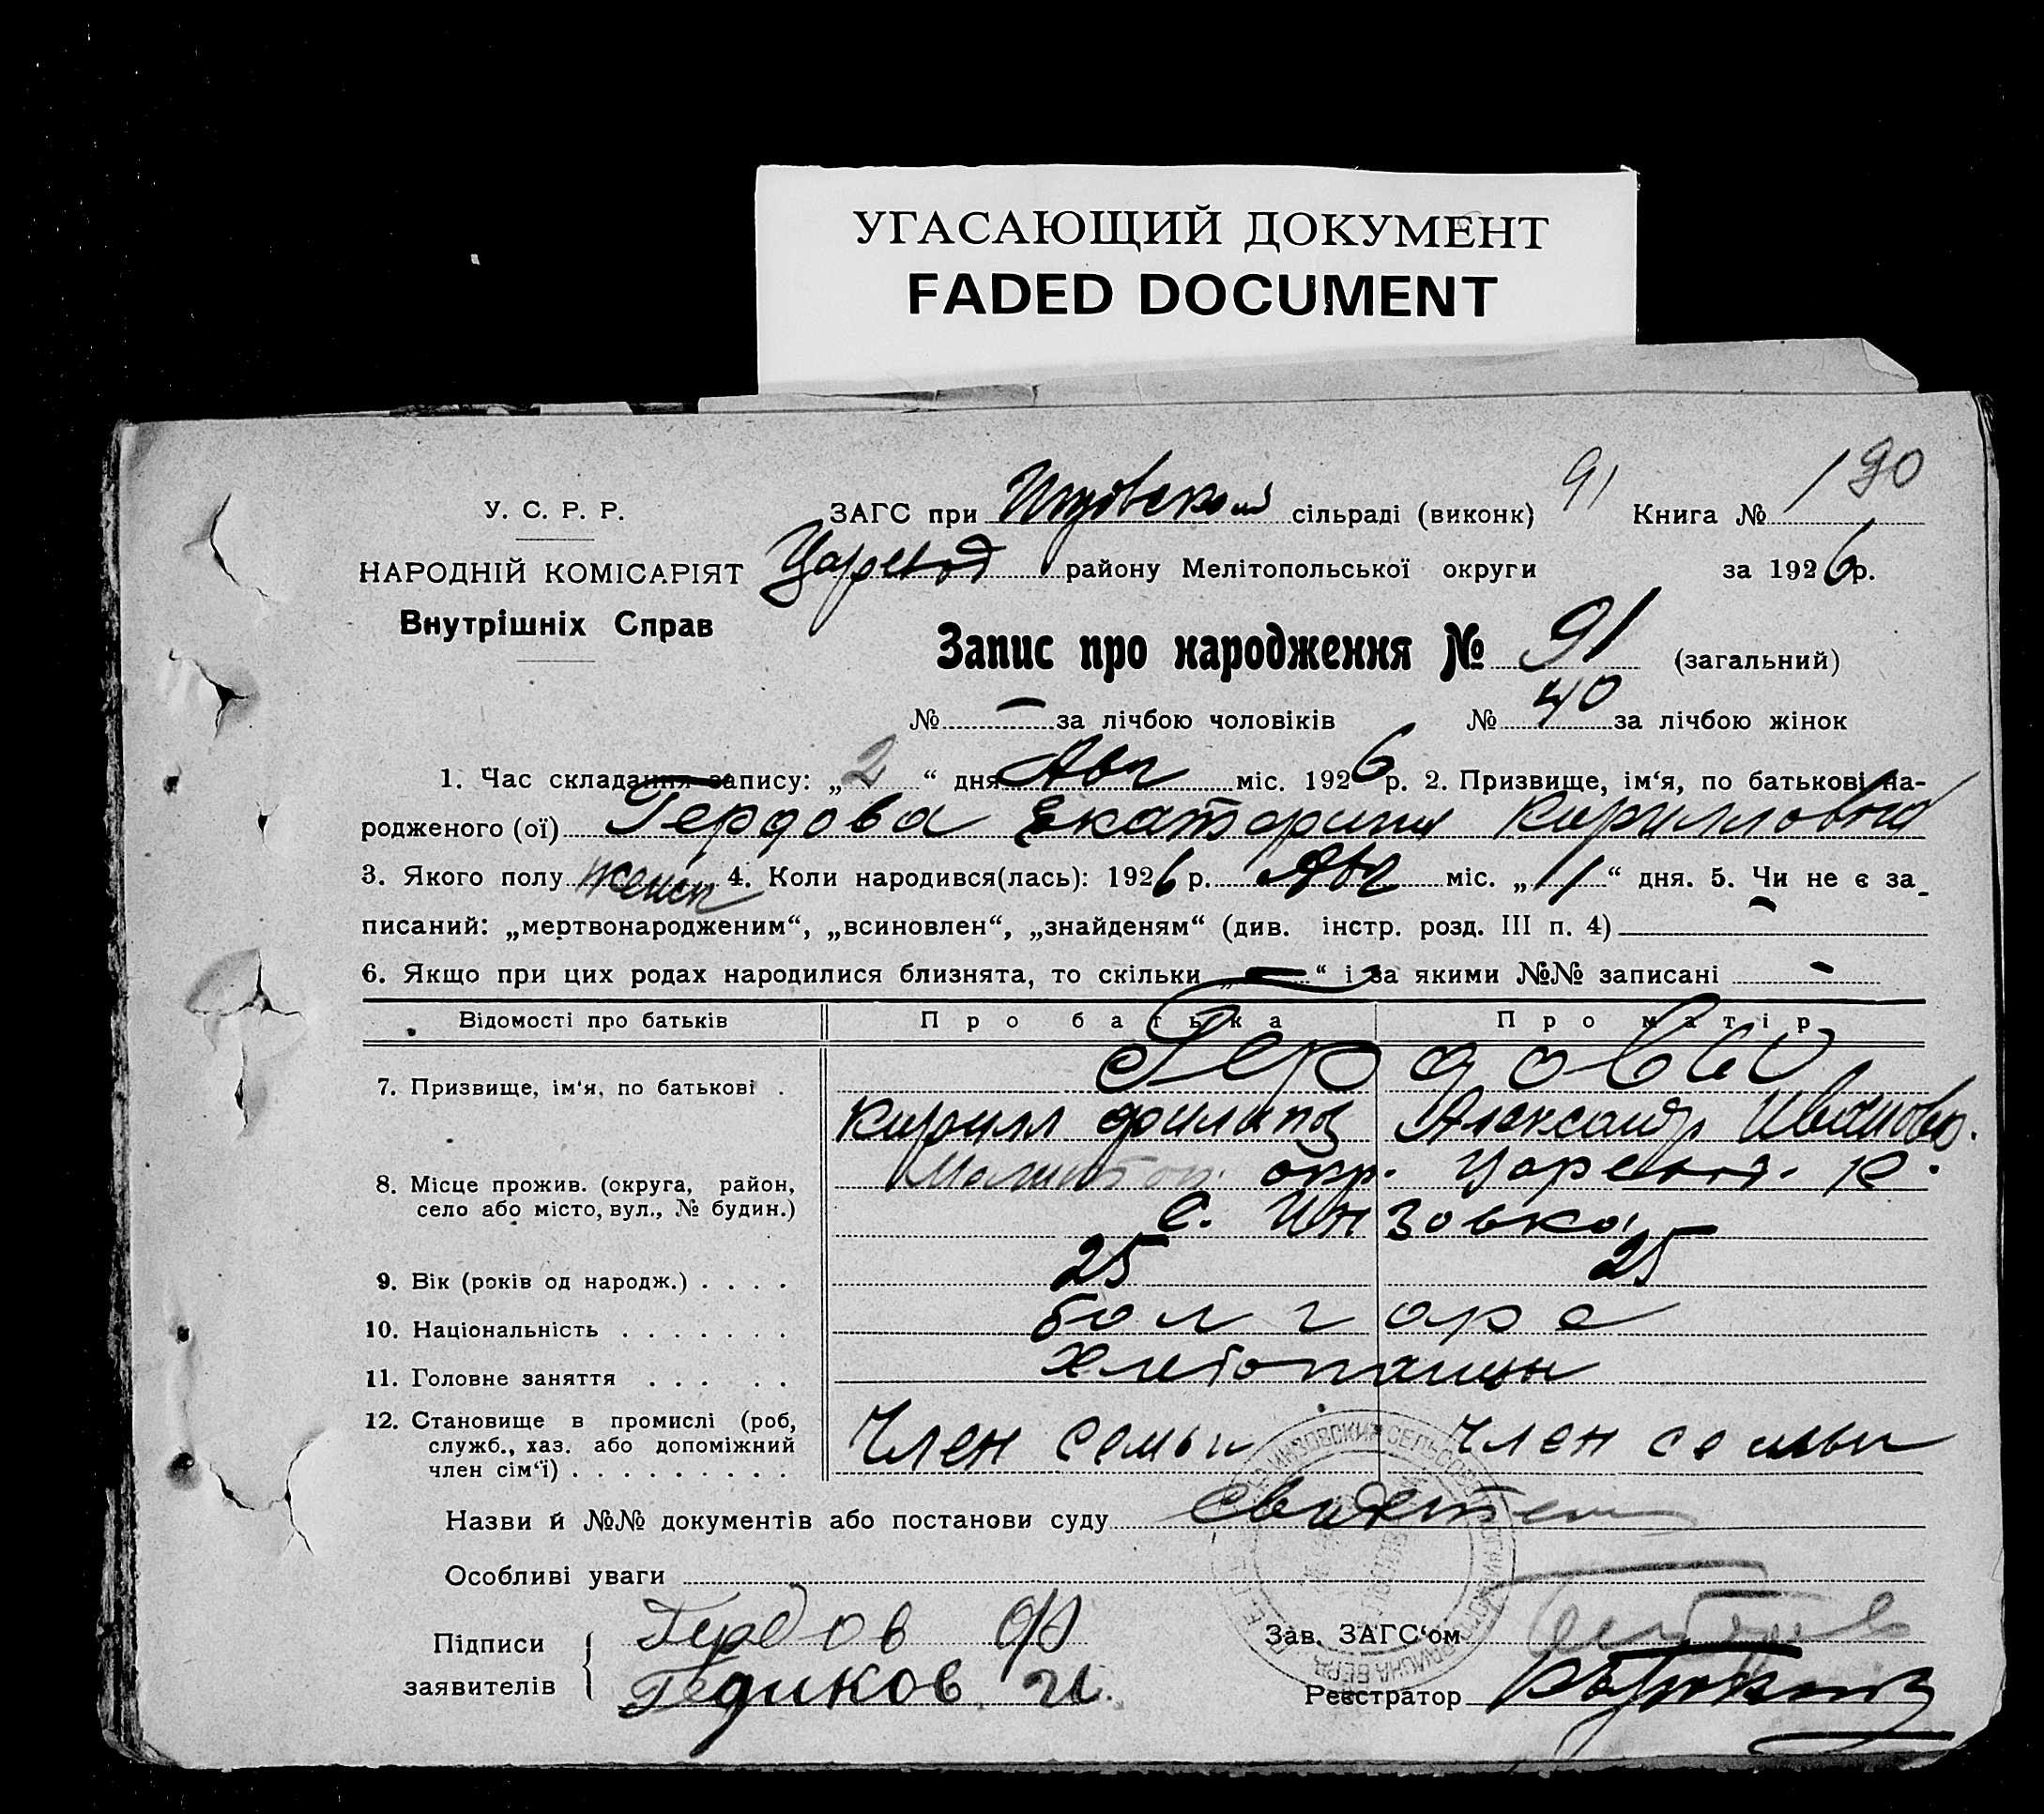 УГАСАЮЩИЙ ДОКУМЕНТ
FADED DOCUMENT
У. С. Р. Р.
НАРОДНІЙ КОМІСАРІЯТ
Внутрішніх Справ
ЗАГС при сільраді (виконк) 91 Книга № 1 90
Царевод району Мелітопольської округи за 1926 р.
Запис про народження № 91 (загальний)
№ — за лічбою чоловіків № 40 за лічбою жінок
1. Час складання запису: „2“ дня Авг міс. 1926 р. 2. Призвище, ім‘я, по батькові на-
родженого (ої) Гердова Екатерина Кирилловна
3. Якого полу женск 4. Коли народився(лась): 1926 р. Авг міс. „1“ дня. 5. Чи не є за-
писаний: „мертвонародженим“, „всиновлен“, „знайденям“ (див. інстр. розд. III п. 4) —
6. Якщо при цих родах народилися близнята, то скільки „—“ і за якими №№ записані —
Відомості про батьків Про батька Про матір
7. Призвище, ім‘я, по батькові . Гердовы
Кирилл Филипов Александр Иванова.
8. Місце прожив. (округа, район, село або місто, вул., № будин.) Мелитоп. окр. Царевод. р.
с. Инзовка
9. Вік (років од народж.) . . . . 25 25
10. Національність . . . . . . . болгаре
11. Головне заняття . . . . . Хлебопашцы
12. Становище в промислі (роб, служб., хаз. або допоміжний член сім‘ї) . . . . . . . . . Член семьи Член семьи
Назви й №№ документів або постанови суду
Особливі уваги
Підписи заявителів Гердов Ф
Гедиков. И.
Зав. ЗАГС‘ом
Реєстратор